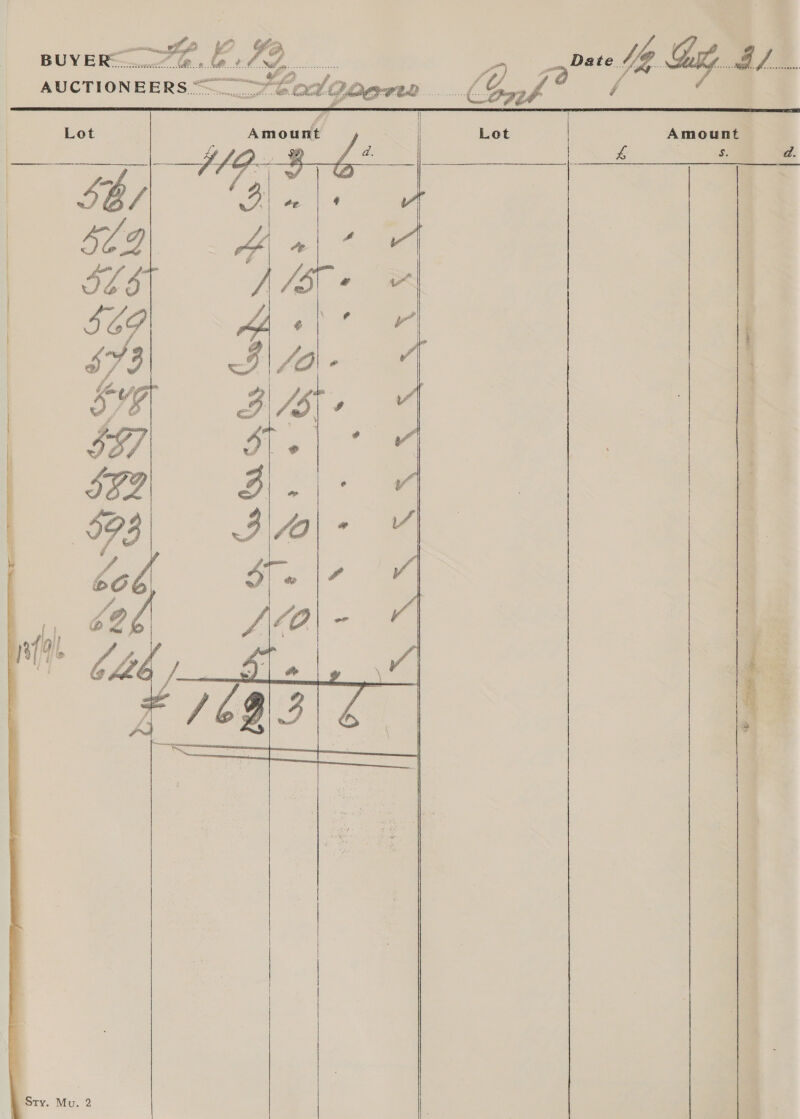 BUYER Date 1/2 July 31
AUCTIONEERS Hodgsons Contd
Lot Amount Lot Amount
119 3 6 d. £ s. d.
561 3 - - ✓
562 4 - - ✓
565 1 15 - ✓
569 4 - - ✓
573 3 10 - ✓
578 3 15 - ✓
581 5 - - ✓
582 3 - - ✓
593 3 10 - ✓
606 5 - - ✓
626 1 10 - ✓
646 5 - - ✓
£ 162 3 6
Sty. Mu. 2